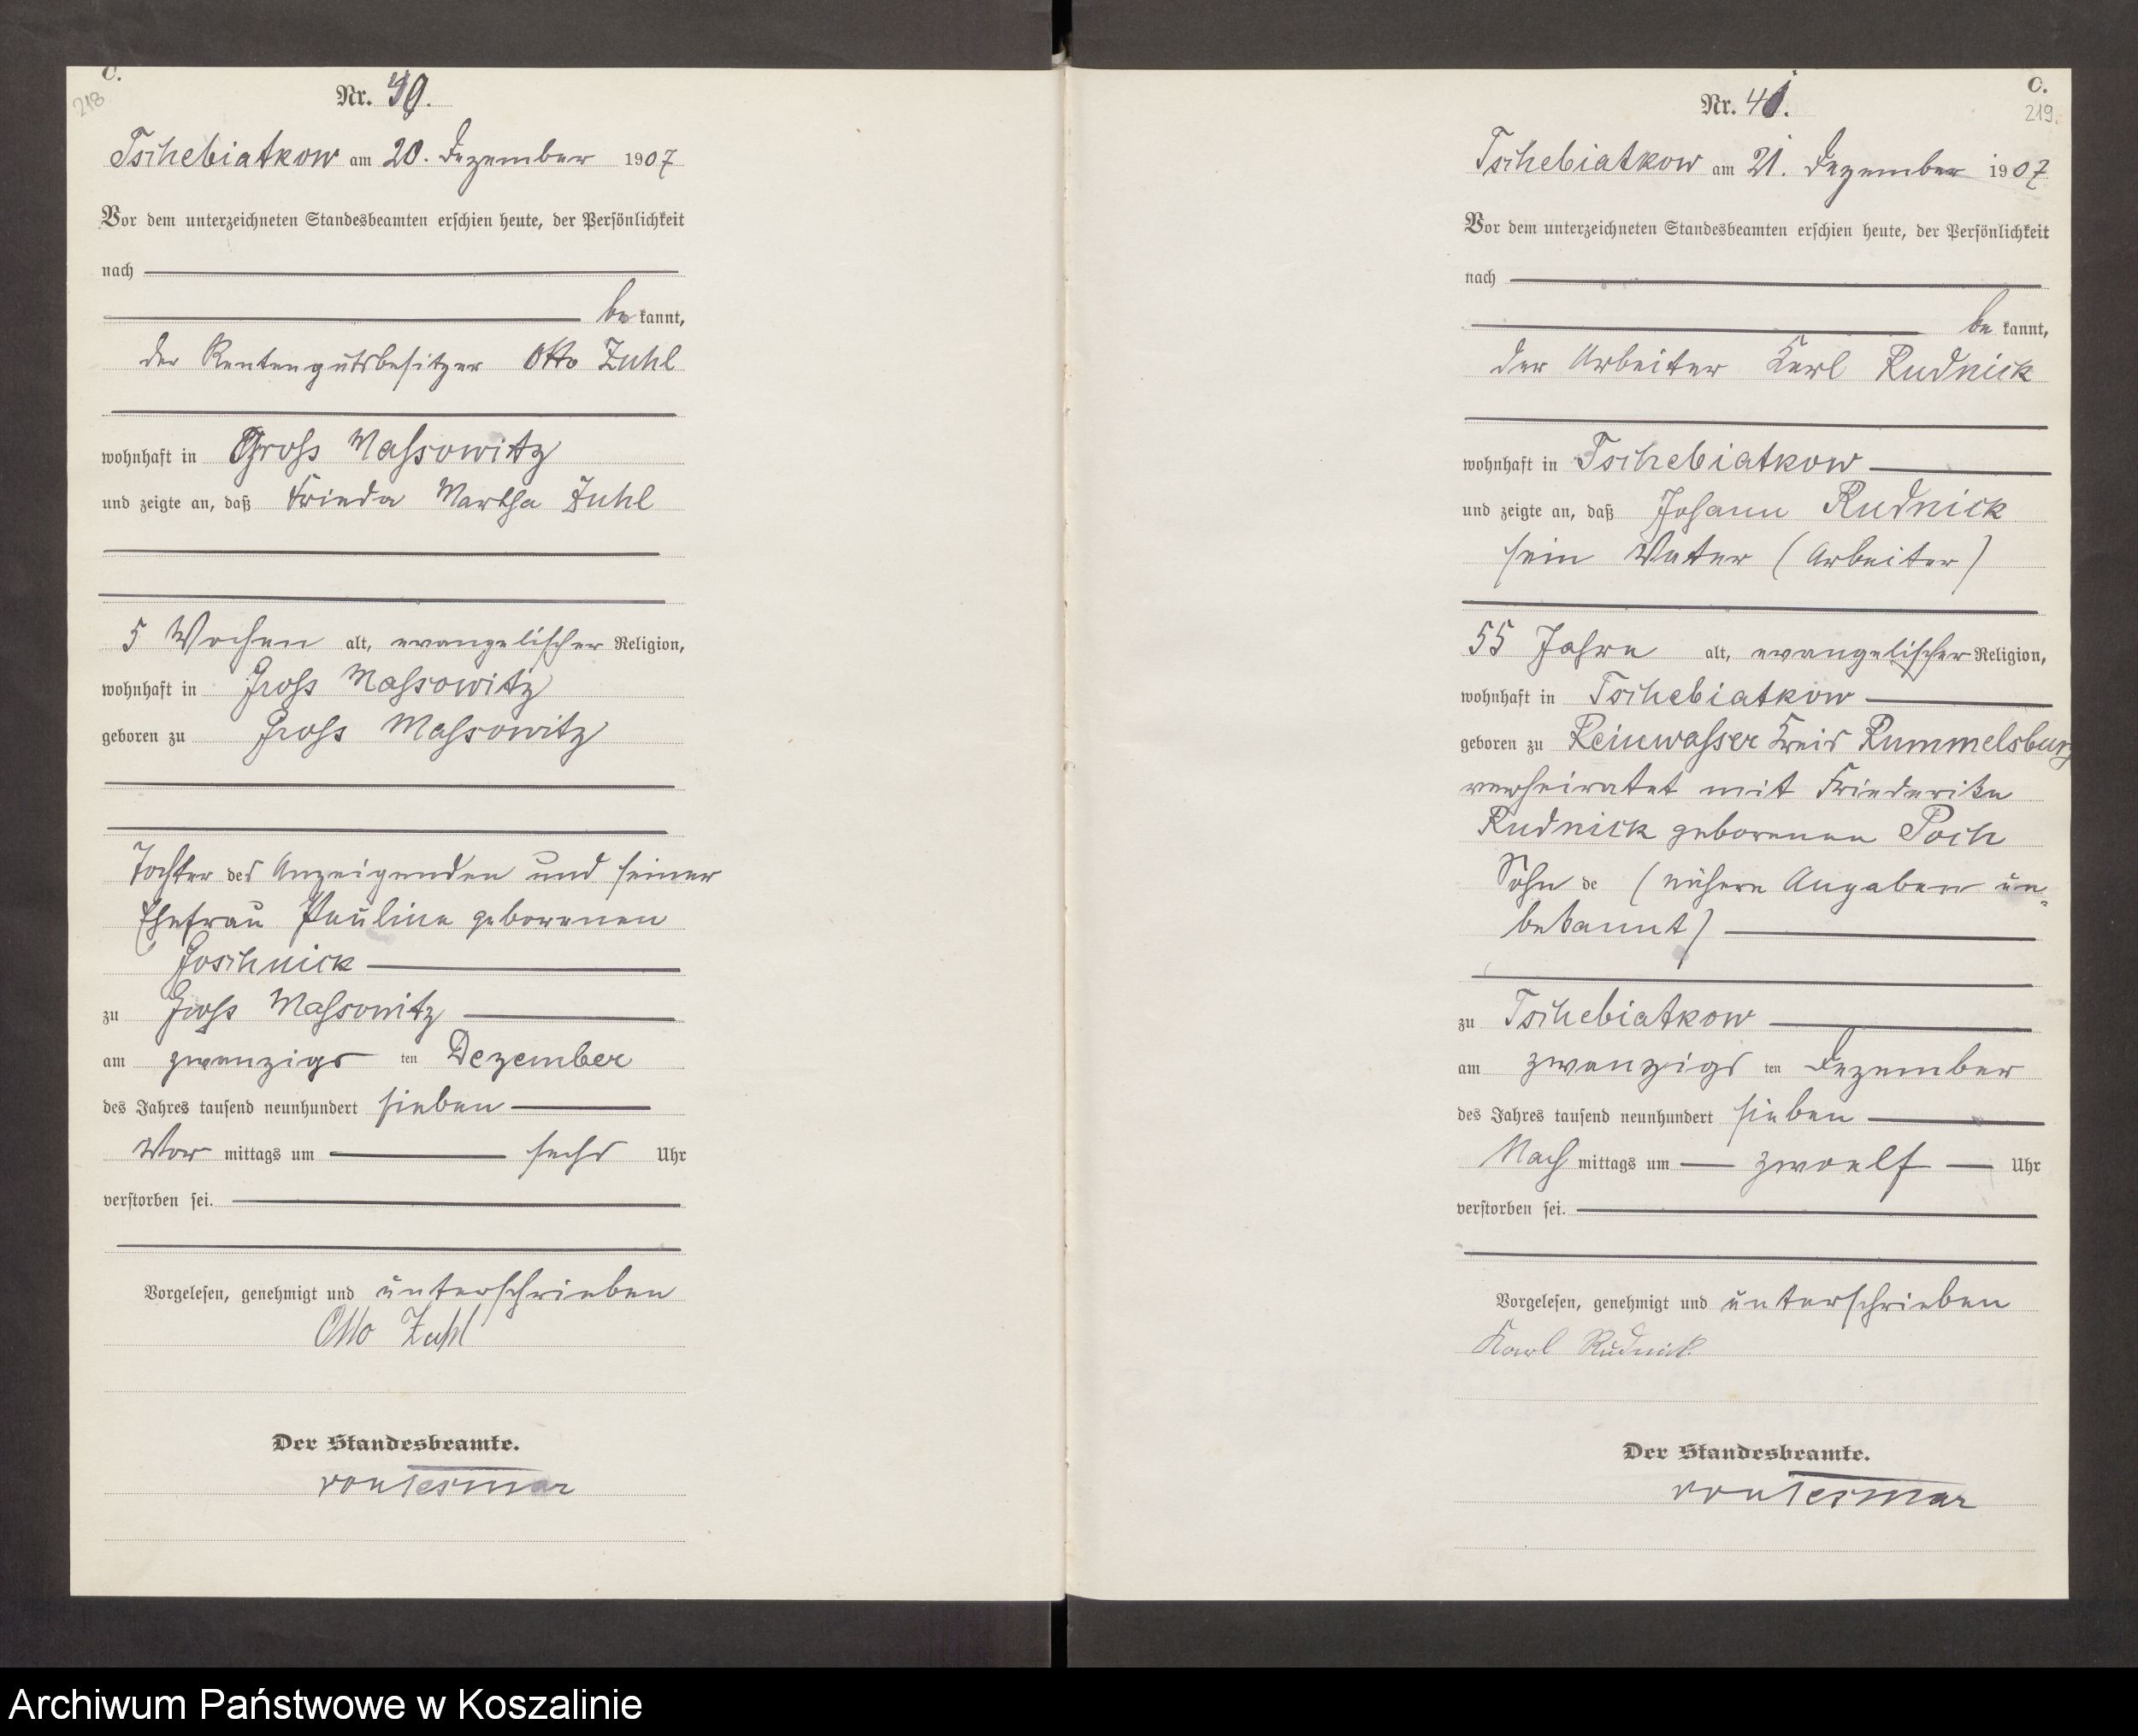 C.
218
Nr. 40.
Tschebiatkow am 20. Dezember 1907
Vor dem unterzeichneten Standesbeamten erschien heute, der Persönlichkeit
nach
be kannt,
der Rentengutsbesitzer Otto Zuhl
wohnhaft in Gross Massowitz
und zeigte an, daß Frieda Martha Zuhl
5 Wochen alt, evangelischer Religion,
wohnhaft in Gross Massowitz
geboren zu Gross Massowitz
Tochter des Anzeigenden und seiner
Ehefrau Pauline geborenen
Joschnick
zu Gross Massowitz
am zwanzigs ten Dezember
des Jahres tausend neunhundert sieben
Vor mittags um sechs Uhr
verstorben sei.
Vorgelesen, genehmigt und unterschrieben
Otto Zuhl
Der Standesbeamte.
von Tesmar
C.
219.
Nr. 41.
Tschebiatkow am 21. Dezember 1907
Vor dem unterzeichneten Standesbeamten erschien heute, der Persönlichkeit
nach
be kannt,
der Arbeiter Karl Rudnick
wohnhaft in Tschebiatkow
und zeigte an, daß Johann Rudnick
sein Vater (Arbeiter)
55 Jahre alt, evangelischer Religion,
wohnhaft in Tschebiatkow
geboren zu Reinwasser Kreis Rummelsburg
verheiratet mit Friederike
Rudnick geborenen Poch
Sohn de (nähere Angaben un-
bekannt)
zu Tschebiatkow
am zwanzigs ten Dezember
des Jahres tausend neunhundert sieben
Nach mittags um zwoelf Uhr
verstorben sei.
Vorgelesen, genehmigt und unterschrieben
Karl Rudnick
Der Standesbeamte.
von Tesmar
Archiwum Państwowe w Koszalinie